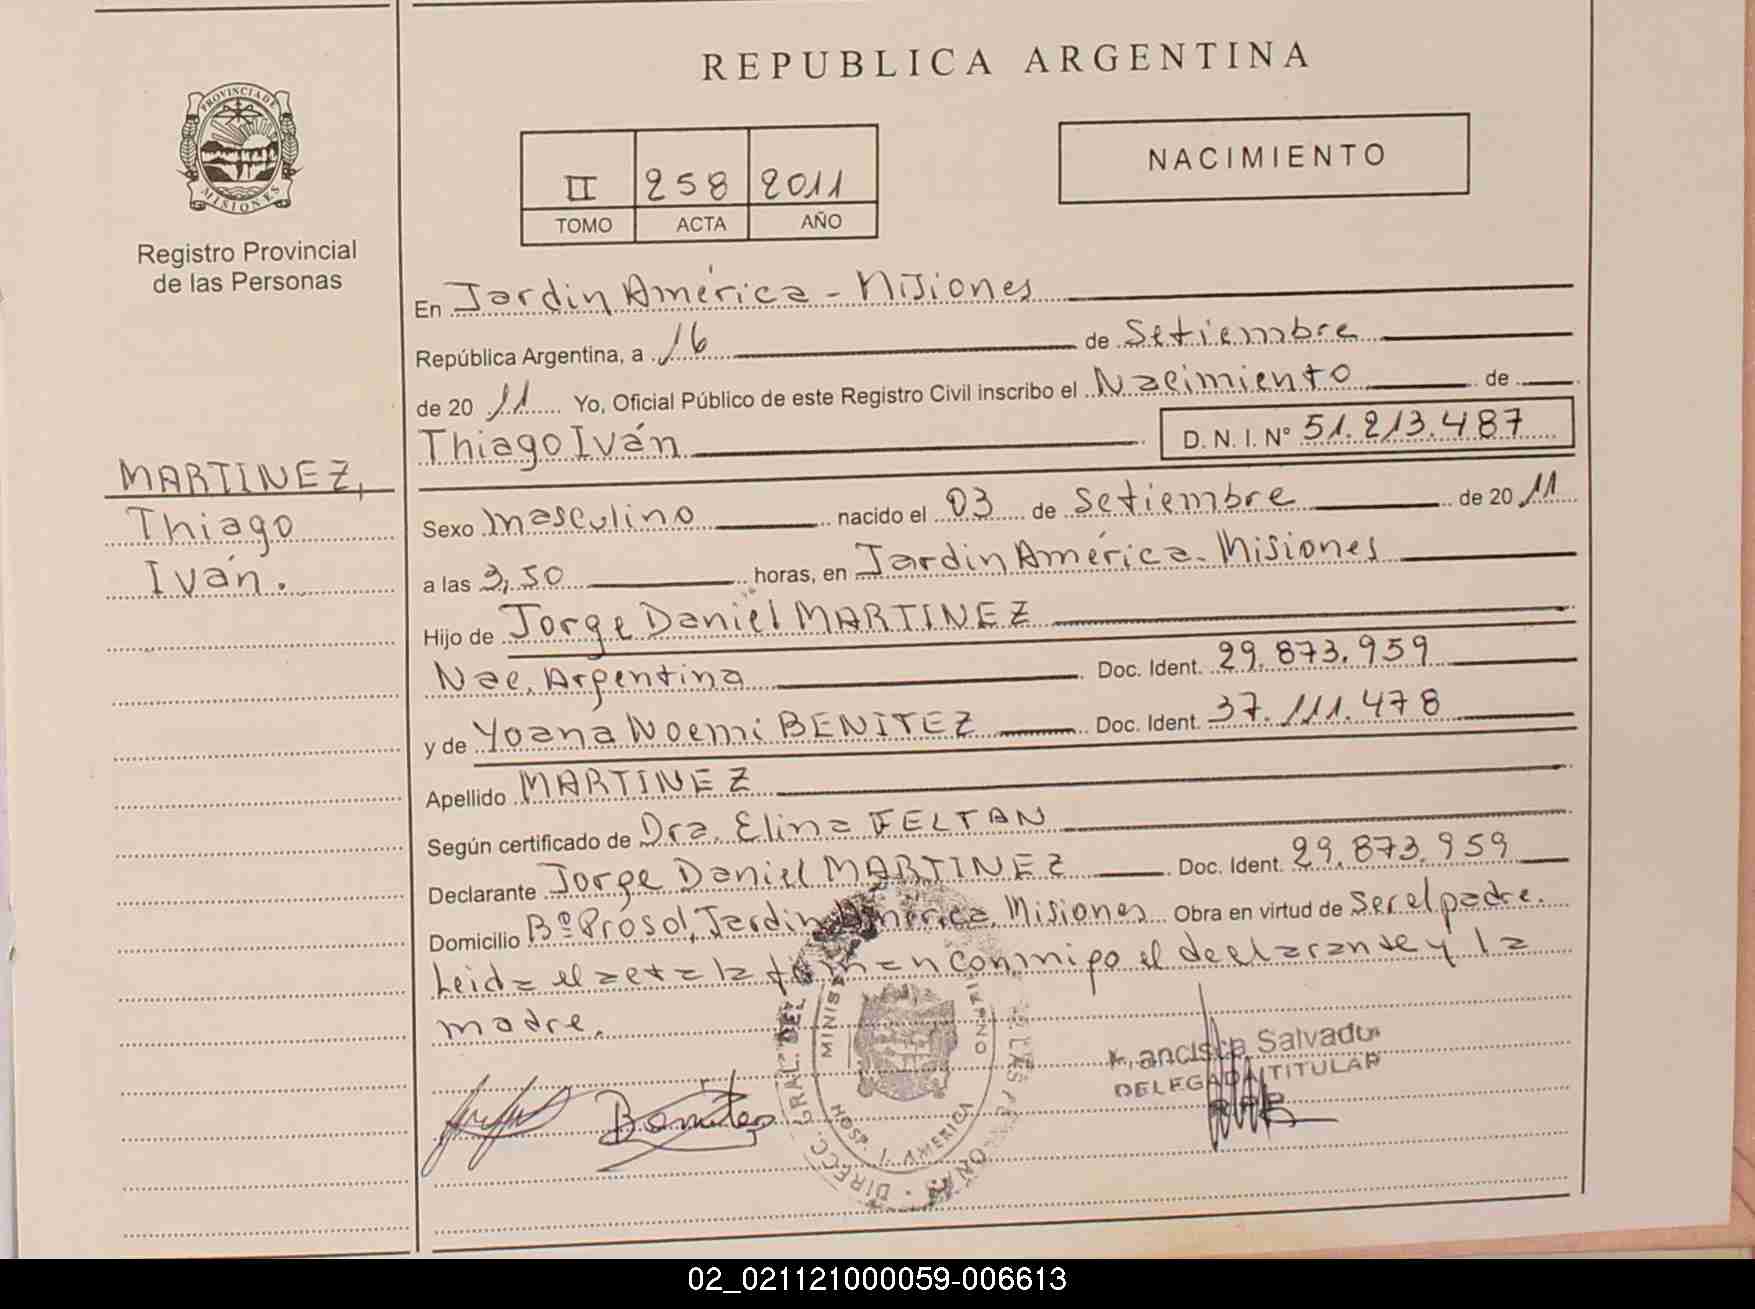 REPUBLICA ARGENTINA
PROVINCIA DE
MISIONES
Registro Provincial
de las Personas
II 258 2011
TOMO ACTA AÑO
NACIMIENTO
En Jardin América - Misiones
República Argentina, a 16 de Setiembre
de 20 11 Yo, Oficial Público de este Registro Civil inscribo el Nacimiento de
Thiago Iván D. N. I. Nº 51.213.487
MARTINEZ,
Thiago
Iván.
Sexo masculino nacido el 03 de Setiembre de 20 11
a las 3,50 horas, en Jardin América - Misiones
Hijo de Jorge Daniel MARTINEZ
Nac. Argentina Doc. Ident. 29.873.959
y de Yoana Noemi BENITEZ Doc. Ident. 37.111.478
Apellido MARTINEZ
Según certificado de Dra. Elina FELTAN
Declarante Jorge Daniel MARTINEZ Doc. Ident. 29.873.959
Domicilio Bº Prosol, Jardin América, Misiones Obra en virtud de ser el padre.
Leida el acta la firman conmigo el declarante y la
madre.
Benitez
DIRECC. GRAL. DEL
HOSP. J. AMERICA
Francisca Salvador
DELEGADA TITULAR
02_021121000059-006613